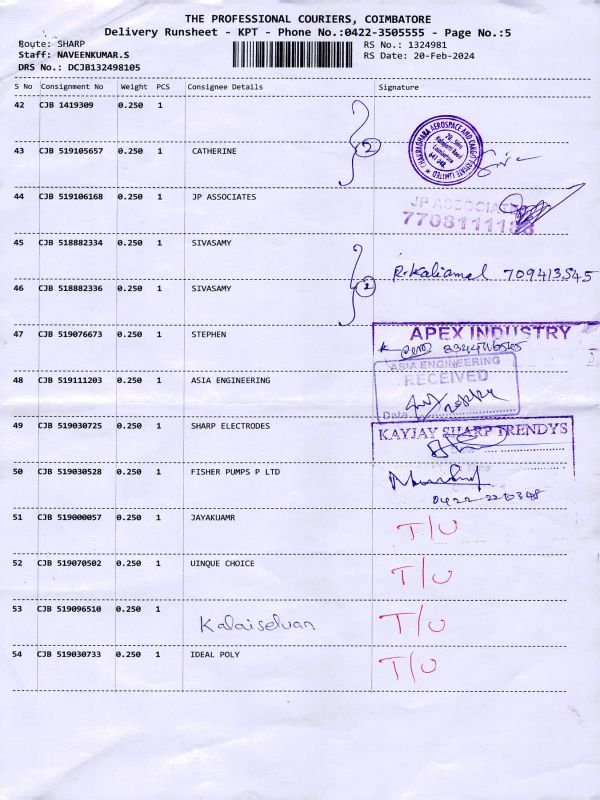 THE PROFESSIONAL COURIERS, COIMBATORE
Delivery Runsheet - KPT - Phone No.:0422-3505555 - Page No.:5
Route: SHARP
RS No.: 1324981
Staff: NAVEENKUMAR.S
RS Date: 20-Feb-2024
DRS No.: DCJB132498105
S No Consignment No Weight PCS Consignee Details Signature
42 CJB 1419309 0.250 1
2
43 CJB 519105657 0.250 1 CATHERINE
44 CJB 519106168 0.250 1 JP ASSOCIATES
JP ASSOCIATES
45 CJB 518882334 0.250 1 SIVASAMY
R. Kaliamal 709413545
46 CJB 518882336 0.250 1 SIVASAMY
47 CJB 519076673 0.250 1 STEPHEN
APEX INDUSTRY
48 CJB 519111203 0.250 1 ASIA ENGINEERING
ASIA ENGINEERING
RECEIVED
Date
49 CJB 519030725 0.250 1 SHARP ELECTRODES
KAYJAY SHARP TRENDYS
50 CJB 519030528 0.250 1 FISHER PUMPS P LTD
51 CJB 519000057 0.250 1 JAYAKUAMR
T/U
52 CJB 519070502 0.250 1 UINQUE CHOICE
T/U
53 CJB 519096510 0.250 1
Kalaiselvan
T/U
54 CJB 519030733 0.250 1 IDEAL POLY
T/U